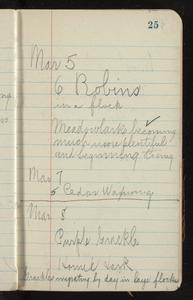 25
Mar 5
6 Robins
in a flock
Meadowlarks becoming
much more plentiful
and beginning
Mar 7
5 Cedar Waxwing
Mar 8
Purple Grackle
Horned Lark
Grackles migrating by day in large flocks